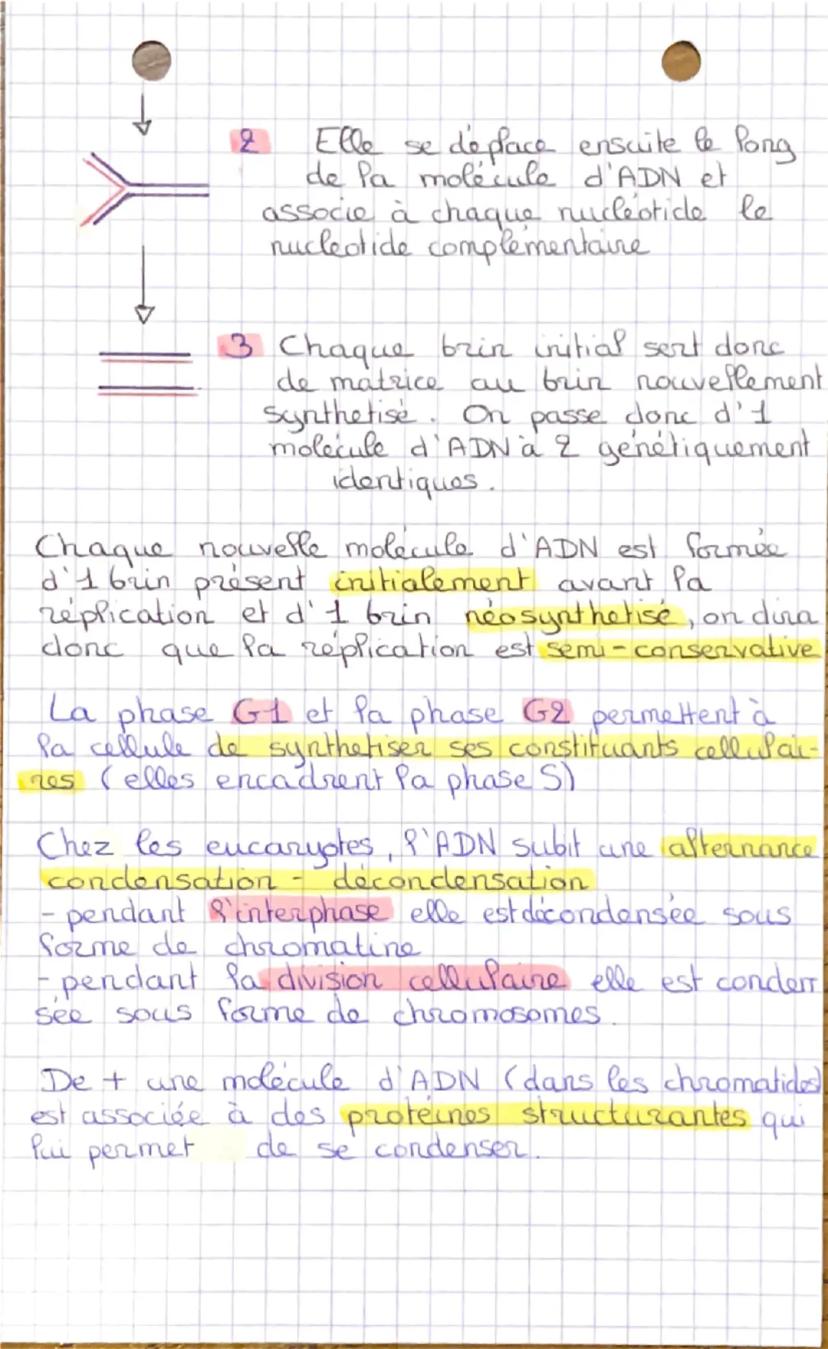 2 Elle se déplace ensuite le long
de la molécule d'ADN et
associe à chaque nucléotide le
nucleotide complémentaire
3 Chaque brin initial sert donc
de matrice au brin nouvellement
synthetisé. On passe donc d'1
molécule d'ADN à 2 génétiquement
identiques.
Chaque nouvelle molécule d'ADN est formée
d'1 brin présent initialement avant la
réplication et d'1 brin néosynthetisé, on dira
donc que la réplication est semi-conservative
La phase G1 et la phase G2 permettent à
la cellule de synthetiser ses constituants cellulai-
res (elles encadrent la phase S)
Chez les eucaryotes, l'ADN subit une alternance
condensation - décondensation
- pendant l'interphase elle est décondensée sous
forme de chromatine
- pendant la division cellulaire elle est conden
sée sous forme de chromosomes.
De + une molécule d'ADN (dans les chromatides)
est associée à des protéines structurantes qui
lui permet de se condenser.